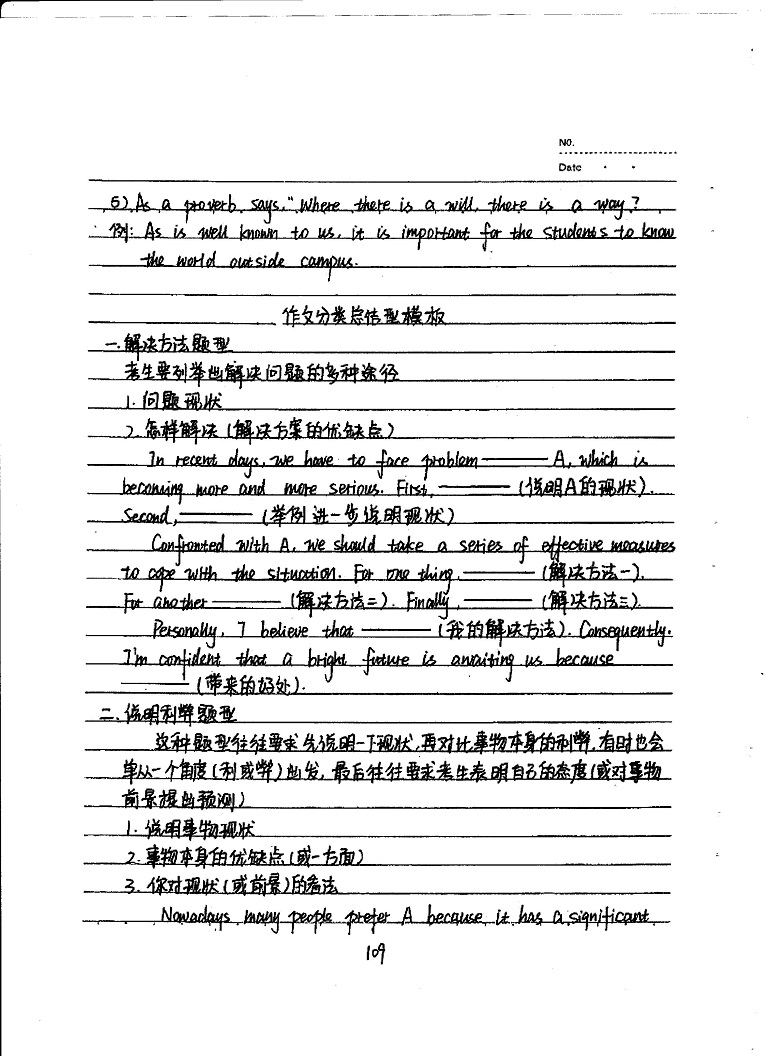 NO.
Date
5) As a proverb says, "Where there is a will, there is a way?
例: As is well known to us, it is important for the students to know
the world outside campus.
作文分类总结型模板
一.解决方法题型
考生要列举出解决问题的多种途径
1.问题现状
2.怎样解决(解决方案的优缺点)
In recent days, we have to face problem ——— A, which is
becoming more and more serious. First, ——— (说明A的现状).
Second, ——— (举例进一步说明现状)
Confronted with A, we should take a series of effective measures
to cope with the situation. For one thing, ——— (解决方法一).
For another ——— (解决方法二). Finally, ——— (解决方法三).
Personally, I believe that ——— (我的解决方法). Consequently,
I'm confident that a bright future is awaiting us because
——— (带来的好处).
二.说明利弊题型
这种题型往往要求先说明一下现状,再对比事物本身的利弊,有时也会
单从一个角度(利或弊)出发,最后往往要求考生表明自己的态度(或对事物
前景提出预测)
1.说明事物现状
2.事物本身的优缺点(或一方面)
3.你对现状(或前景)的看法
Nowadays many people prefer A because it has a significant
109